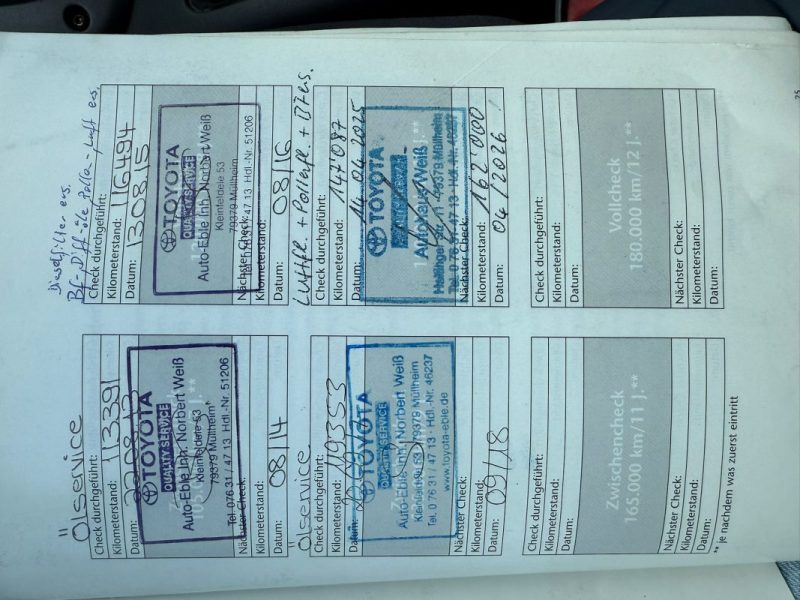 Ölservice
Check durchgeführt:
Kilometerstand: 113391
Datum:
TOYOTA
QUALITY SERVICE
Auto-Eble Inh. Norbert Weiß
Kleinfeldele 53
79379 Müllheim
Tel. 0 76 31 / 47 13 · Hdl.-Nr. 51206
Nächster Check:
Kilometerstand:
Datum: 08/14
Dieselfilter ers,
Check durchgeführt:
Kilometerstand: 116494
Datum: 13.08.15
TOYOTA
QUALITY SERVICE
Auto-Eble Inh. Norbert Weiß
Kleinfeldele 53
79379 Müllheim
47 13 · Hdl.-Nr. 51206
Nächster Check:
Kilometerstand:
Datum: 08/16
Ölservice
Check durchgeführt:
Kilometerstand: 119353
Datum:
TOYOTA
QUALITY SERVICE
Auto-Eble Inh. Norbert Weiß
Kleinfeldele 53 79379 Müllheim
Tel. 0 76 31 / 47 13 · Hdl.-Nr. 46237
www.toyota-eble.de
Nächster Check:
Kilometerstand:
Datum: 09/18
Luftfi. + Pollenfi. + BZ ers.
Check durchgeführt:
Kilometerstand: 147'087
Datum: 14 04 2025
TOYOTA
QUALITY SERVICE
Autohaus Weiß
79379 Müllheim
Tel. 0 76 31 · 47 13 · Hdl.-Nr.
Nächster Check:
Kilometerstand: 162'000
Datum: 04/2026
Check durchgeführt:
Kilometerstand:
Datum:
Zwischencheck
165.000 km/11 J.**
Nächster Check:
Kilometerstand:
Datum:
Check durchgeführt:
Kilometerstand:
Datum:
Vollcheck
180.000 km/12 J.**
Nächster Check:
Kilometerstand:
Datum:
** je nachdem was zuerst eintritt
25